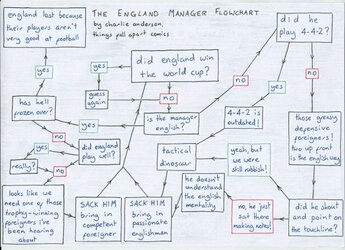 THE ENGLAND MANAGER FLOWCHART
by charlie anderson,
things fall apart comics
england lost because
their players aren't
very good at football
did he
play 4-4-2?
did england win
the world cup?
yes
yes
guess
again
no
yes
no
has hell
frozen over?
yes
is the manager
english?
4-4-2 is
outdated!
those greasy
defensive
foreigners!
two up front
is the english way
no
did england
play well?
yes
no
tactical
dinosaur
yeah, but
we were
still rubbish!
really?
no
he doesn't
understand
the english
mentality
looks like we
need one of those
trophy-winning
foreigners I've
been hearing
about
SACK HIM
bring in
competent
foreigner
SACK HIM
bring in
passionate
englishman
no, he just
sat there
making notes!
did he shout
and point on
the touchline?